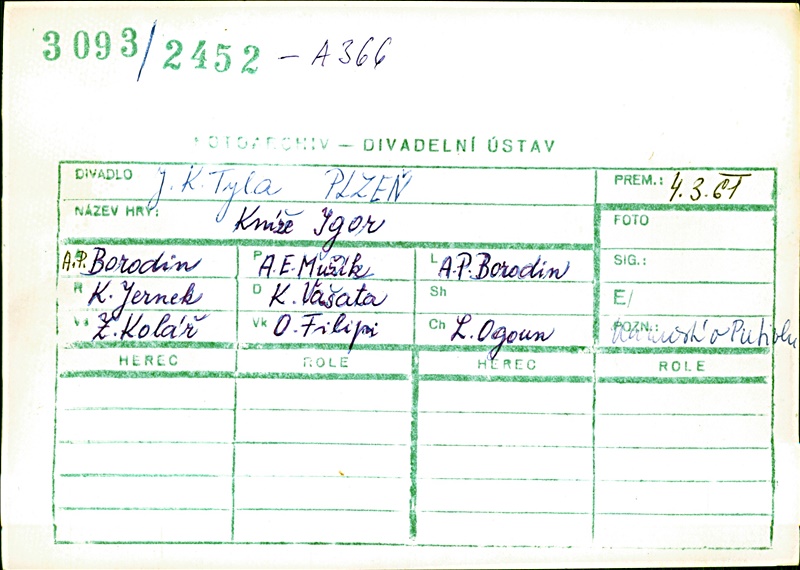 3093/2452 - A366
FOTOARCHIV — DIVADELNÍ ÚSTAV
DIVADLO J. K. Tyla PLZEŇ PREM.: 4.3.61
NÁZEV HRY: Kníže Igor FOTO
A.P. Borodin P A.E. Mužík L A.P. Borodin SIG.:
R K. Jernek D K. Vašata Sh E/
Vs Z. Kolář Vk O. Filipi Ch L. Ogoun POZN.: o Putivlu
HEREC ROLE HEREC ROLE